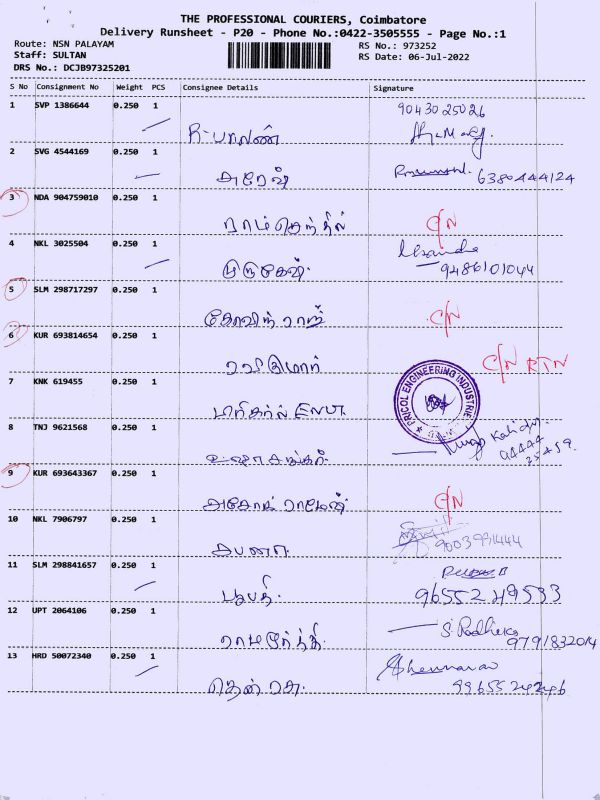 THE PROFESSIONAL COURIERS, Coimbatore
Delivery Runsheet - P20 - Phone No.:0422-3505555 - Page No.:1
Route: NSN PALAYAM RS No.: 973252
Staff: SULTAN RS Date: 06-Jul-2022
DRS No.: DCJB97325201
S No Consignment No Weight PCS Consignee Details Signature
1 SVP 1386644 0.250 1 9043025026
R-பாலன்
2 SVG 4544169 0.250 1
6380444124
3 NDA 904759010 0.250 1
ராம் செந்தில் C/N
4 NKL 3025504 0.250 1
முருகேஷ். 9486101044
5 SLM 298717297 0.250 1
கோவிந் ராஜ் C/N
6 KUR 693814654 0.250 1
ரவிகுமார் C/N RTN
7 KNK 619455 0.250 1 PRICOL ENGINEERING INDUSTRIE
8 TNJ 9621568 0.250 1
94444
25459.
9 KUR 693643367 0.250 1
அசோக் C/N
10 NKL 7906797 0.250 1
11 SLM 298841657 0.250 1
பூபதி. 9655249533
12 UPT 2064106 0.250 1
ராமமூர்த்தி. S. Radheka
9791832014
13 HRD 50072340 0.250 1
தென்றசு.